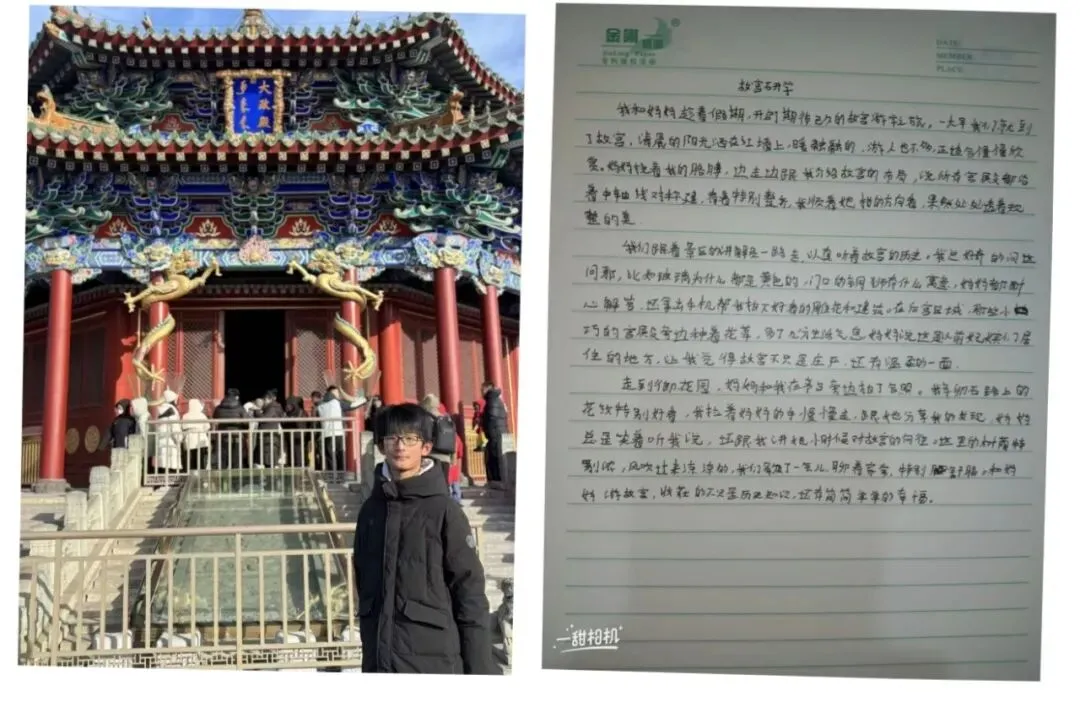 大政殿
金陶
DATE:
NUMBER:
PLACE:
故宫研学
我和妈妈趁着假期,开启期待已久的故宫游学之旅。一大早我们就到
了故宫,清晨的阳光洒在红墙上,暖融融的,游人也不多,正适合慢慢欣
赏。妈妈挽着我的胳膊,边走边跟我介绍故宫的布局,说所有宫殿都沿
着中轴线对称建,看着特别整齐,我顺着她指的方向看,果然处处透着规
整的美
我们跟着景区的讲解员一路走,认真听着故宫的历史。我总好奇的问这
问那,比如琉璃为什么都是黄色的,门口的铜狮有什么寓意,妈妈都耐
心解答,还拿出手机帮我拍下好看的雕花和建筑。在后宫区域,那些小
巧的宫殿旁边种着花草,多了几分生活气息,妈妈说这是以前妃嫔们居
住的地方,让我觉得故宫不只是庄严,还有温柔的一面.
走到御花园,妈妈和我在古树旁边拍了合照。我拉着妈妈的手慢慢走,跟她分享我的发现,妈妈
总是笑着听我说,还跟我讲她小时候对故宫的向往。这里的树荫特
别浓,风吹过来凉凉的,我们坐了一会儿,聊着家常,特别舒服。和妈
妈游故宫,收获的不只是历史知识,还有简简单单的幸福。
一甜相机